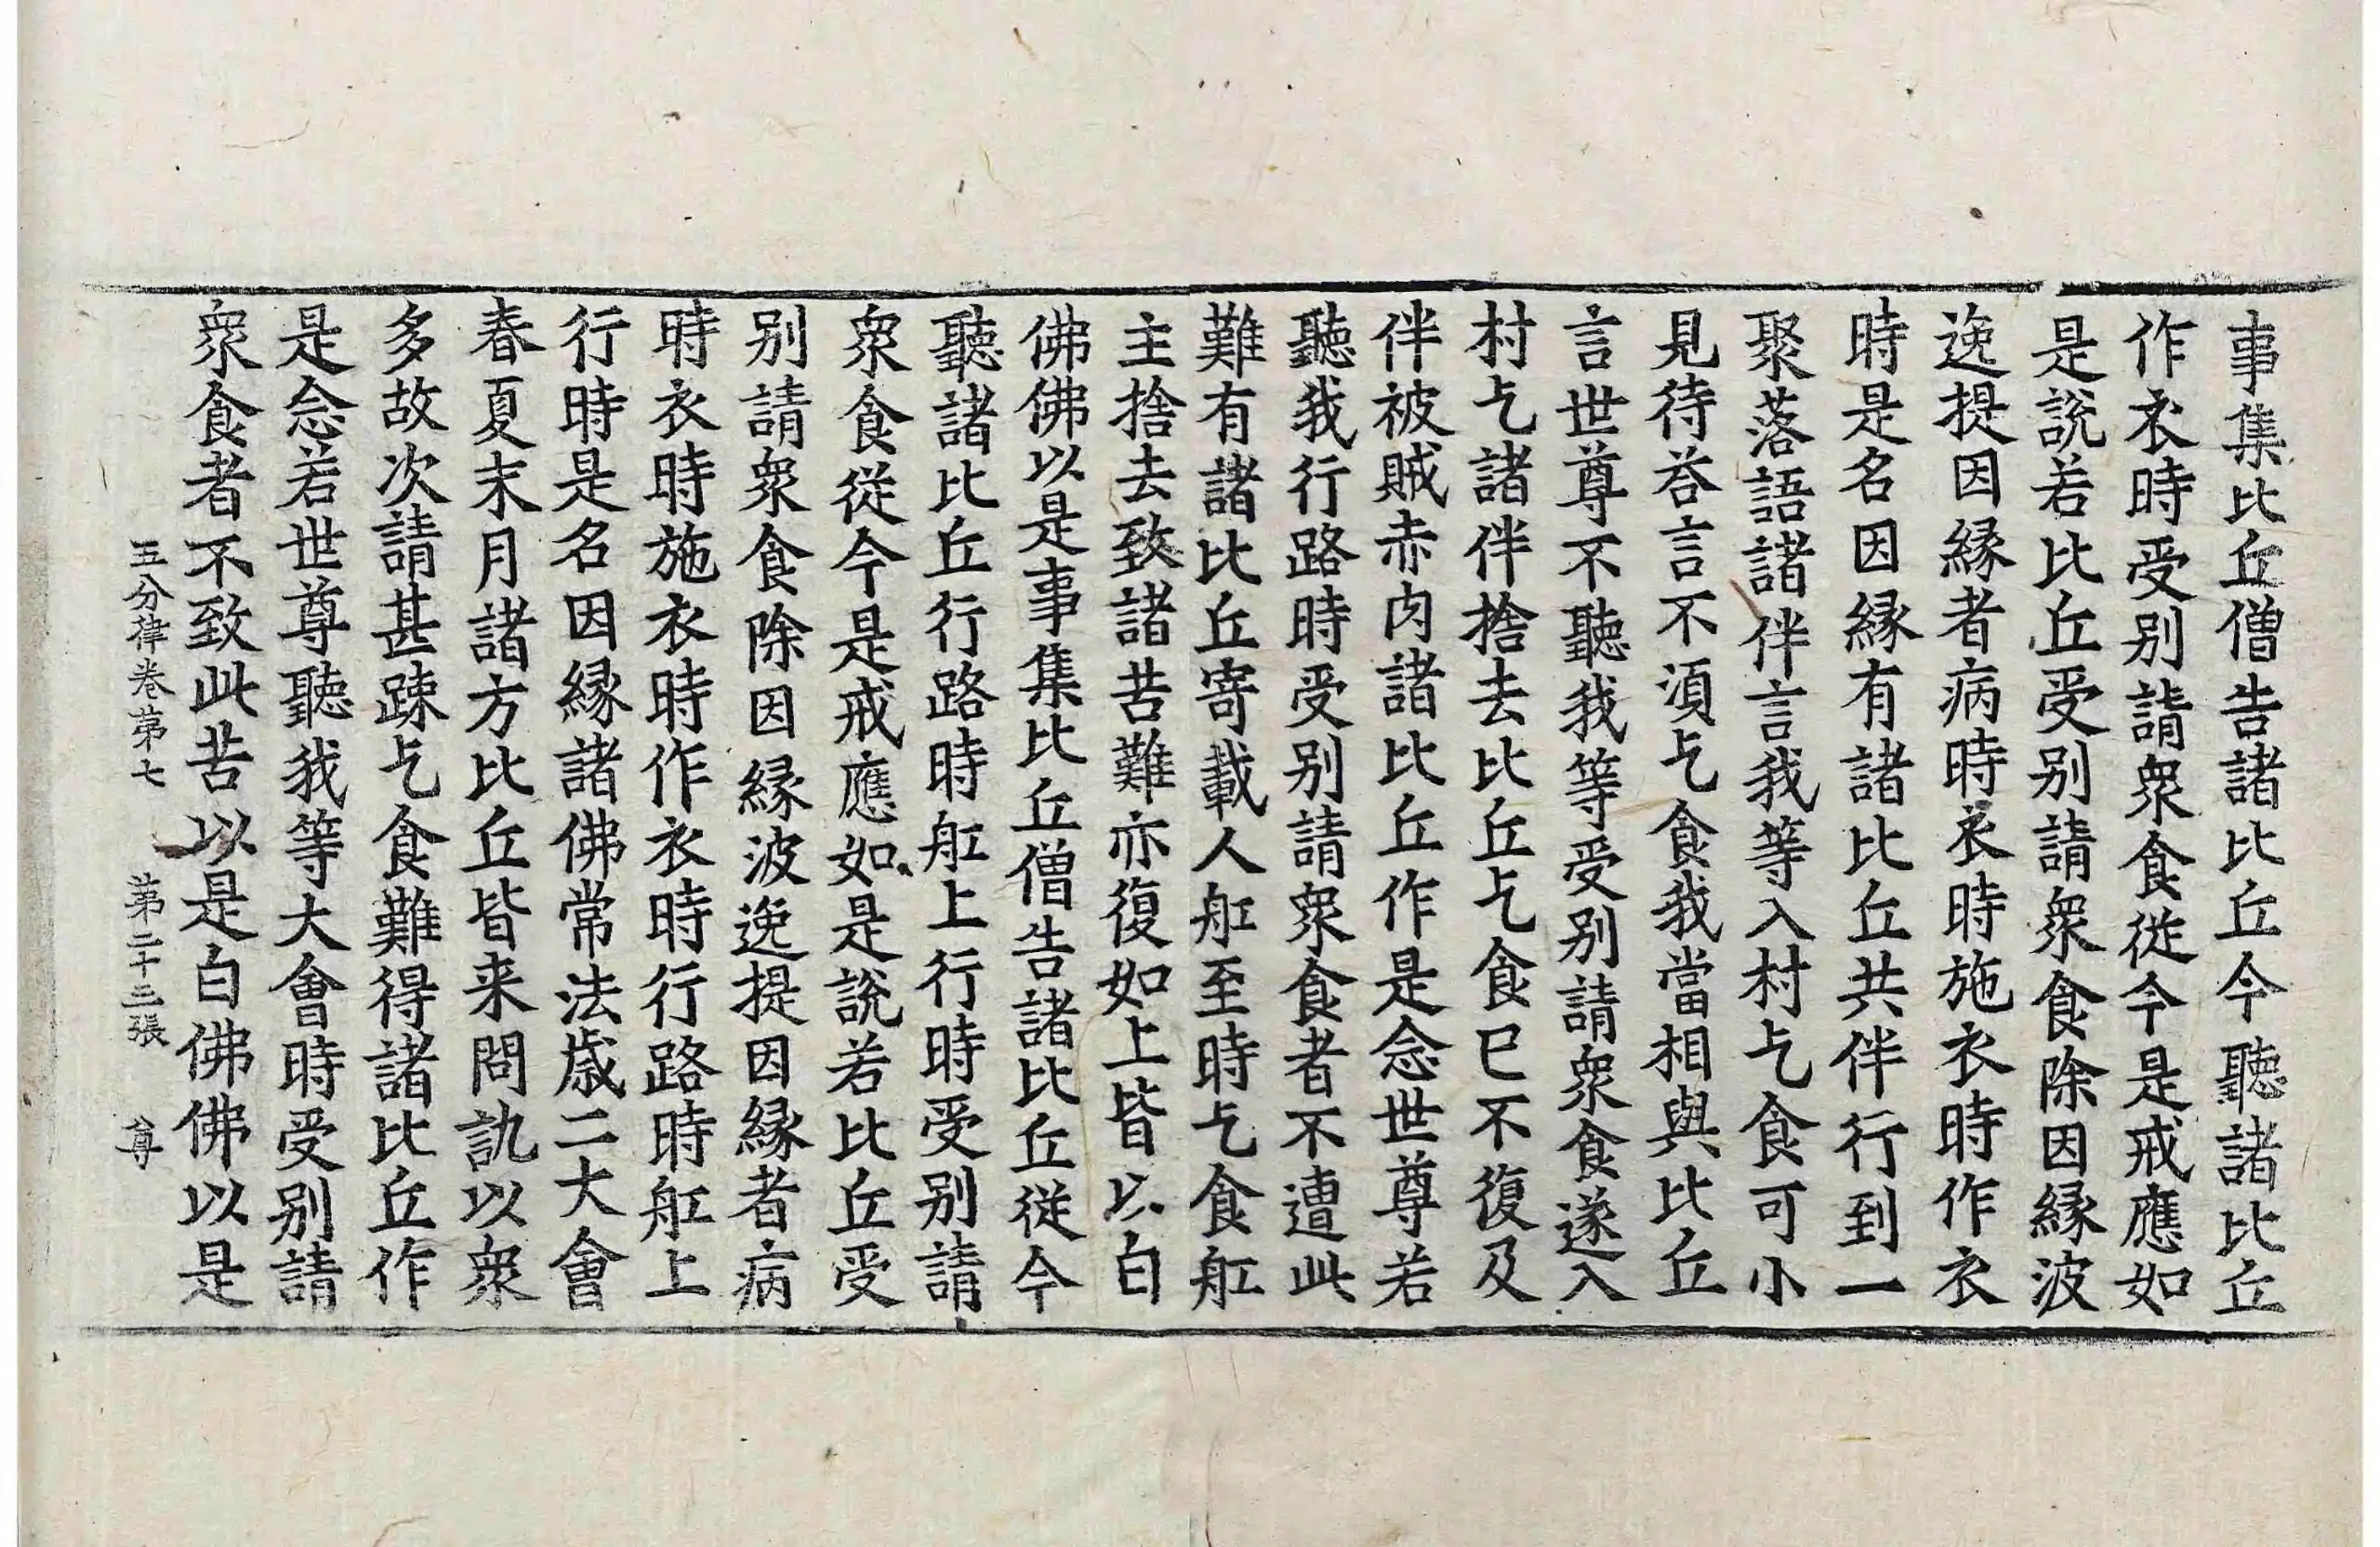 事集比丘僧告諸比丘今聽諸比丘
作衣時受别請衆食從今是戒應如
是說若比丘受别請衆食除因縁波
逸提因縁者病時衣時施衣時作衣
時是名因縁有諸比丘共伴行到一
聚落語諸伴言我等入村乞食可小
見待荅言不湏乞食我當相與比丘
言世尊不聽我等受别請衆食遂入
村乞諸伴捨去比丘乞食已不復及
伴被賊赤肉諸比丘作是念世尊若
聽我行路時受别請衆食者不遭此
難有諸比丘寄載人舡至時乞食舡
主捨去致諸苦難亦復如上皆以白
佛佛以是事集比丘僧告諸比丘從今
聽諸比丘行路時舡上行時受别請
衆食從今是戒應如是說若比丘受
别請衆食除因縁波逸提因縁者病
時衣時施衣時作衣時行路時舡上
行時是名因縁諸佛常法歳二大會
春夏末月諸方比丘皆来問訊以衆
多故次請甚踈乞食難得諸比丘作
是念若世尊聽我等大會時受别請
衆食者不致此苦以是白佛佛以是
五分律卷第七 第二十三張 尊